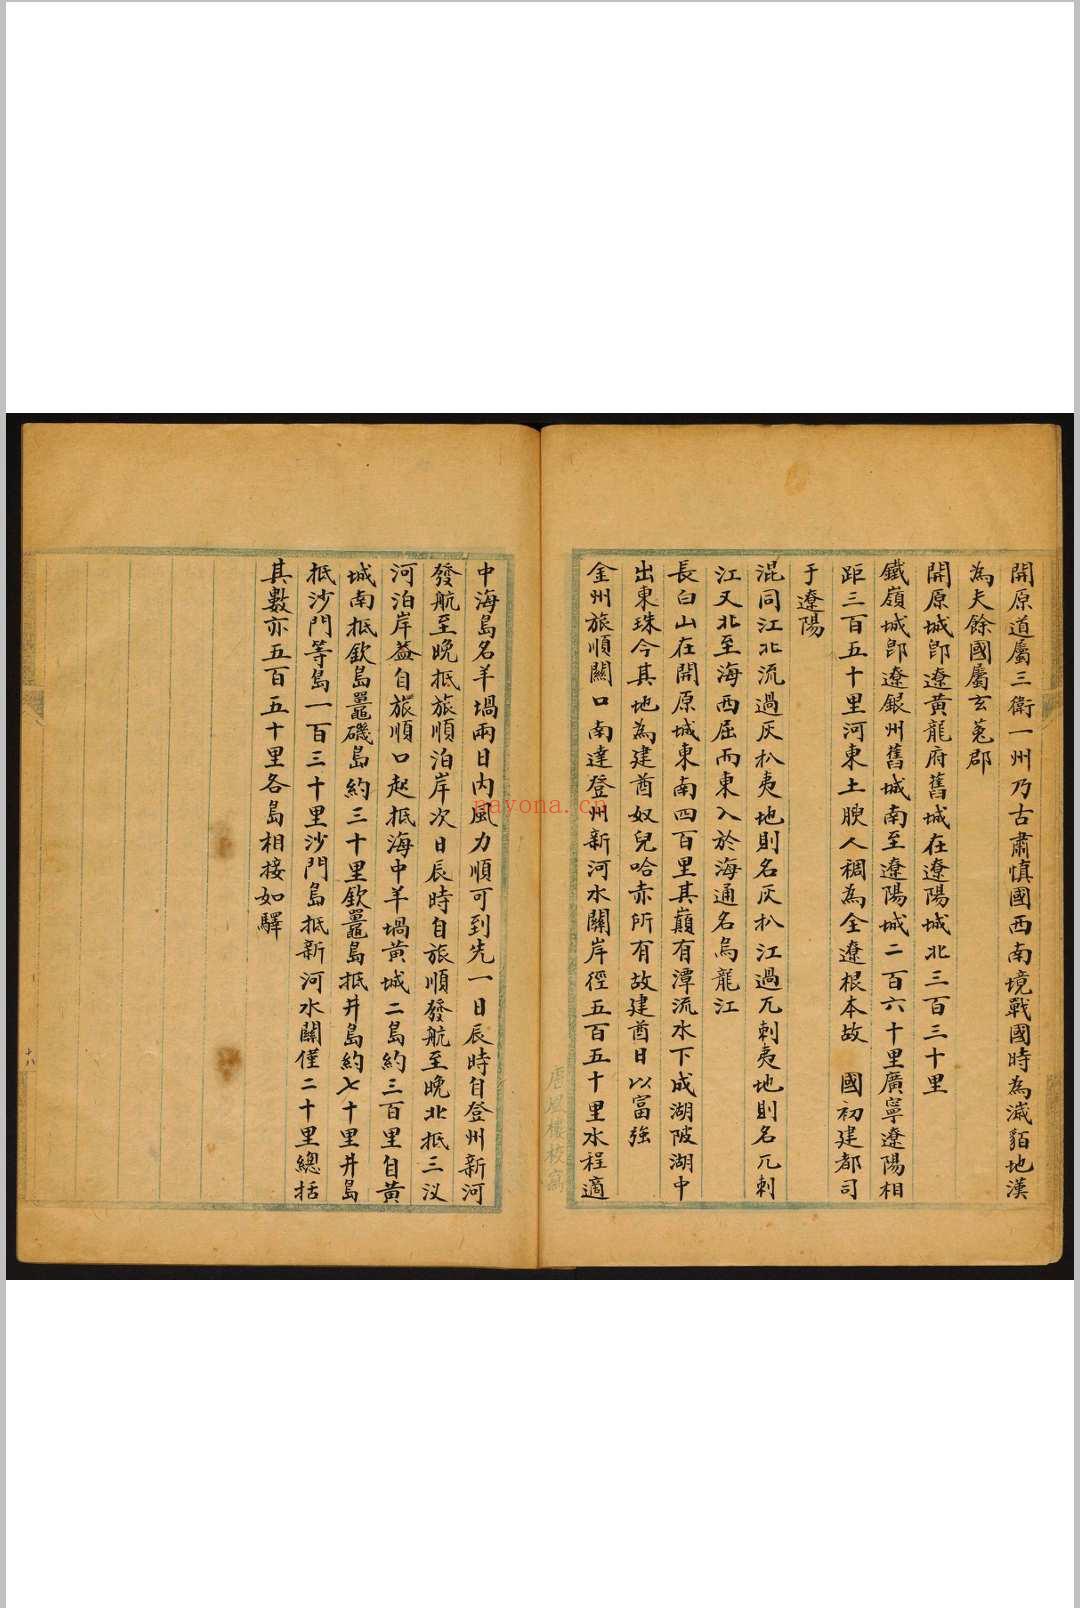 開原道屬三衛一州乃古肅慎國西南境戰國時為濊貊地漢
為夫餘國屬玄菟郡
開原城卽遼黃龍府舊城在遼陽城北三百三十里
鐵嶺城卽遼銀州舊城南至遼陽城二百六十里廣寧遼陽相
距三百五十里河東土腴人稠為全遼根本故　國初建都司
于遼陽
混同江北流過灰扒夷地則名灰扒江過兀剌夷地則名兀剌
江又北至海西屈而東入於海通名烏龍江
長白山在開原城東南四百里其巔有潭流水下成湖陂湖中
出東珠今其地為建酋奴兒哈赤所有故建酋日以富強
金州旅順關口南達登州新河水關岸徑五百五十里水程適
唐風樓校寫
中海島名羊堝兩日內風力順可到先一日辰時自登州新河
發航至晚抵旅順泊岸次日辰時自旅順發航至晚北抵三汊
河泊岸葢自旅順口起抵海中羊堝黃城二島約三百里自黃
城南抵欽島鼉磯島約三十里欽鼉島抵井島約七十里井島
抵沙門等島一百三十里沙門島抵新河水關僅二十里總括
其數亦五百五十里各島相接如驛
十八
nayona.cn